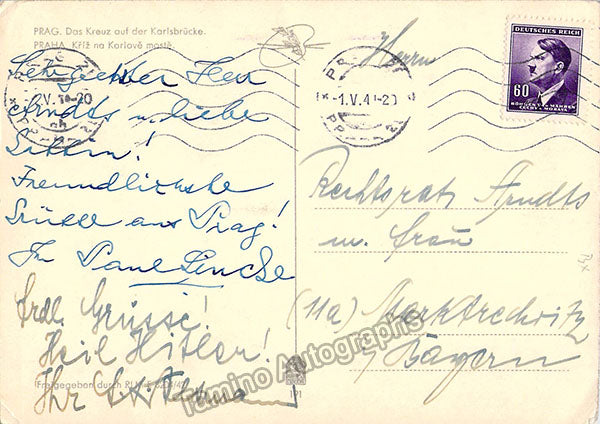 PRAG. Das Kreuz auf der Karlsbrücke.
PRAHA. Kříž na Karlově mostě.
Sehr geehrter Herr
Arndts u. liebe
Gattin!
Freundlichste
Grüsse aus Prag!
Ihr Paul Lincke
Frdl. Grüsse!
Heil Hitler!
Ihr
Freigegeben durch RLM
191
Herrn
Rechtsrat Arndts
u. Frau
(11a) Marktredwitz
Bayern
DEUTSCHES REICH
60
BÖHMEN U. MÄHREN
ČECHY A MORAVA
-1.V.4 -20
Tamino Autographs